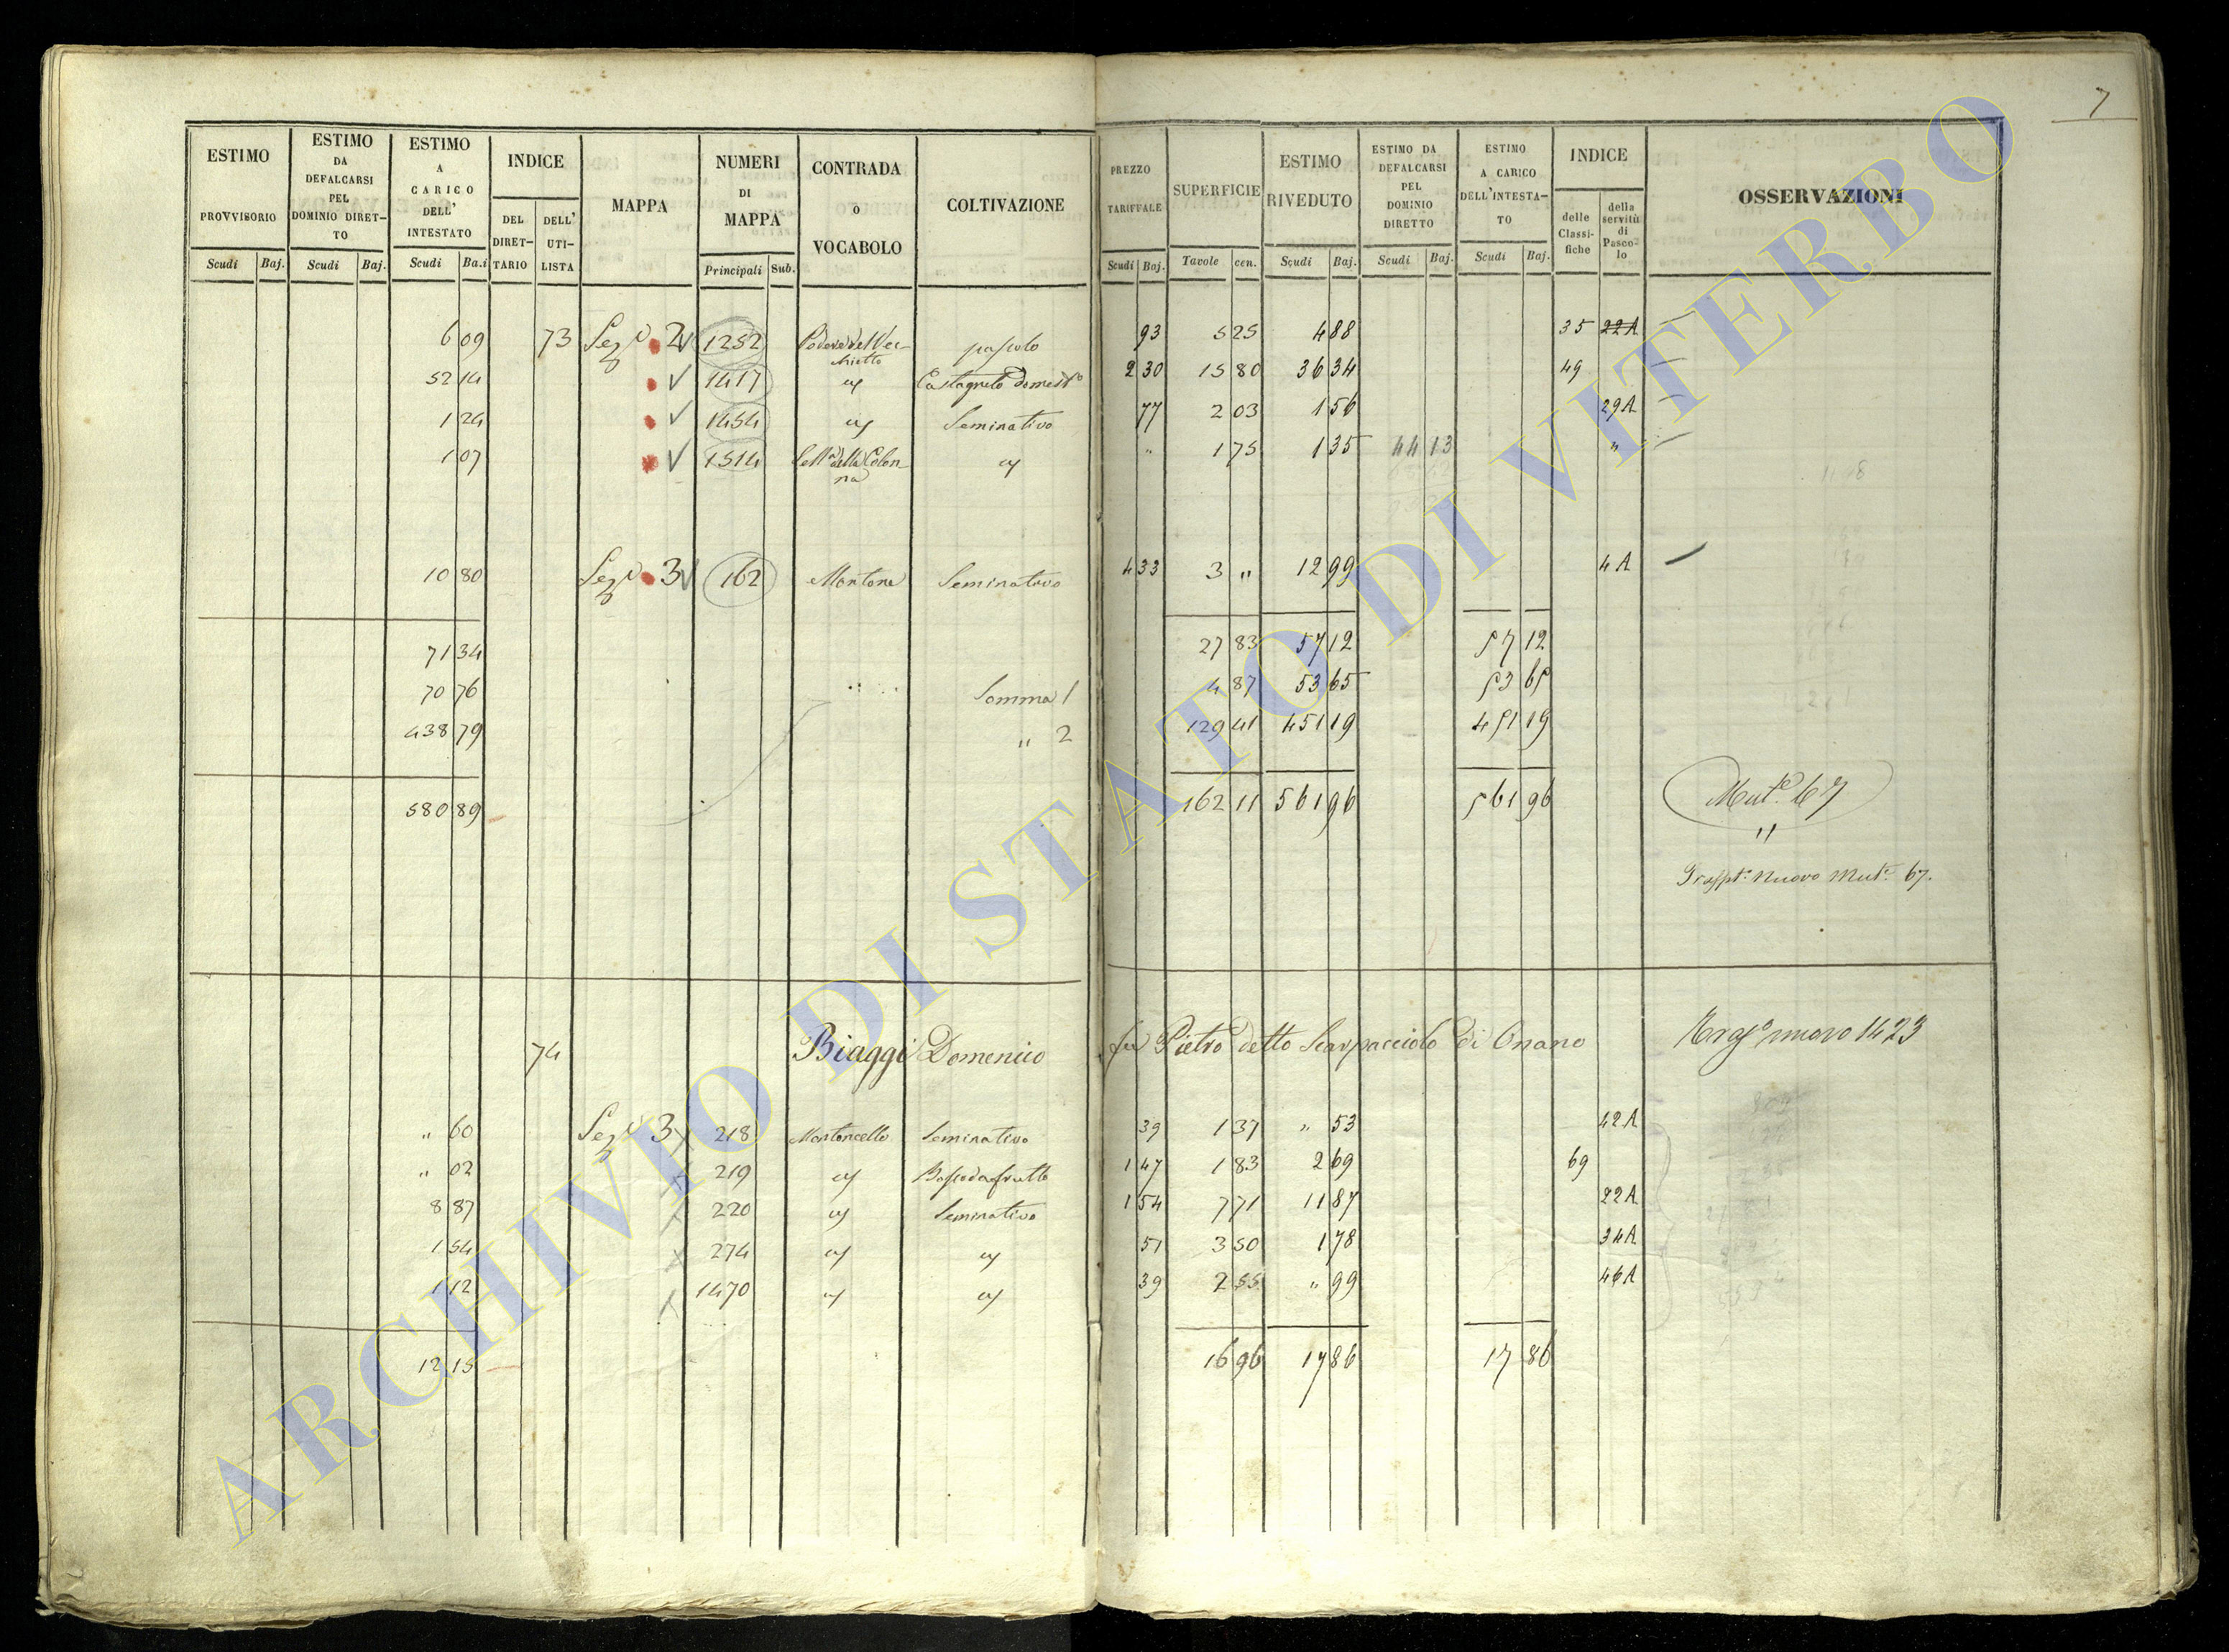 7
ESTIMO PROVVISORIO
ESTIMO DA DEFALCARSI PEL DOMINIO DIRET-TO
ESTIMO A CARICO DELL' INTESTATO
INDICE
DEL DIRET-TARIO
DELL' UTI-LISTA
MAPPA
NUMERI DI MAPPA
CONTRADA o VOCABOLO
COLTIVAZIONE
PREZZO TARIFFALE
SUPERFICIE
ESTIMO RIVEDUTO
ESTIMO DA DEFALCARSI PEL DOMINIO DIRETTO
ESTIMO A CARICO DELL'INTESTA-TO
INDICE
delle Classi-fiche
della servitù di Pasco-lo
OSSERVAZIONI
Scudi Baj. Scudi Baj. Scudi Ba.i Principali Sub. Scudi Baj. Tavole cen. Scudi Baj. Scudi Baj. Scudi Baj.
6 09 73 Sez. 2 1252 pascolo 93 5 25 4 88 35 22A
52 14 1417 Castagneto domest.o 2 30 15 80 36 34 49
1 24 1454 Seminativo 77 2 03 1 56 29A
1 07 1514 della Colon-na " 1 75 1 35 44 13 "
10 80 Sez. 3 162 Montone Seminativo 4 33 3 " 12 99 4A
71 34 27 83 57 12 57 12
70 76 Somma 1 4 87 53 65 53 65
438 79 " 2 129 41 451 19 451 19
580 89 162 11 561 96 561 96 Mut.e 67
"
nuovo Mut. 67.
74 Biaggi Domenico fu Pietro detto Scarpacciolo di Onano nuovo 1423
" 60 Sez. 3 218 Montoncello Seminativo 39 1 37 " 53 42A
" 02 219 Bosco da frutto 1 47 1 83 2 69 69
8 87 220 Seminativo 1 54 7 71 11 87 22A
1 54 274 51 3 50 1 78 34A
1 12 1470 39 2 55 " 99 46A
12 15 16 96 17 86 17 86
ARCHIVIO DI STATO DI VITERBO